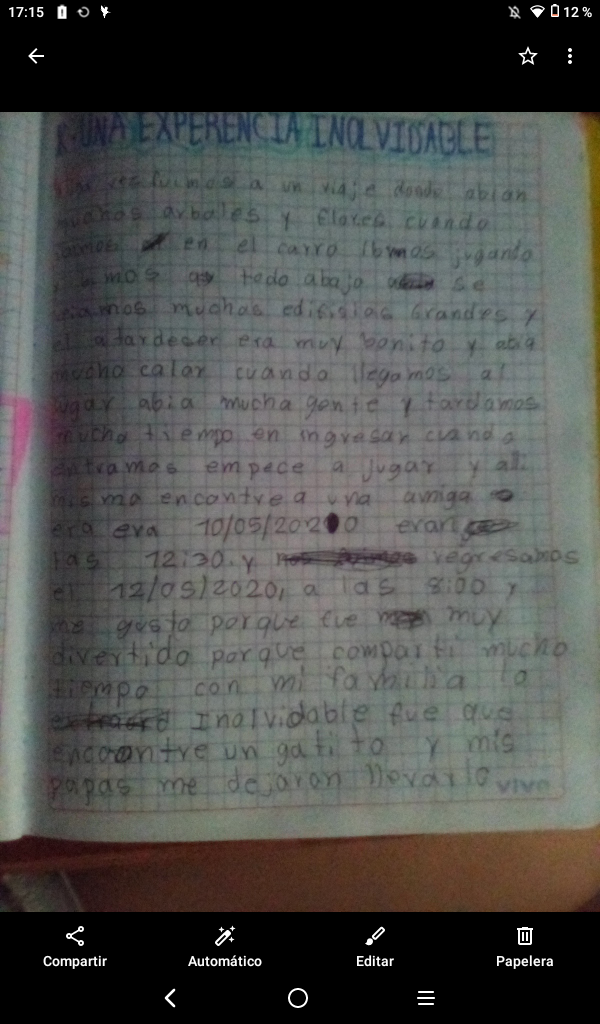 17:15
12 %
UNA EXPERENCIA INOLVIDABLE
fuimos a un viaje donde abian
muchas arboles y flores cuando
en el carro ibmos jugando
todo abajo se
muchas edifisias Grandes y
el atardeser era muy bonito y abia
mucho calor cuando llegamos al
lugar abia mucha gente y tardamos
mucho tiempo en ingresar cuando
entramos empece a jugar y alli
misma encontre a una amiga
era eva 10/05/2020 eran
las 12:30. y regresamos
el 12/05/2020, a las 8:00 y
me gusto porque fue muy
divertido porque comparti mucho
tiempo con mi familia lo
Inolvidable fue que
encoontre un gatito y mis
papas me dejaron llevarlo vivo
Compartir
Automático
Editar
Papelera